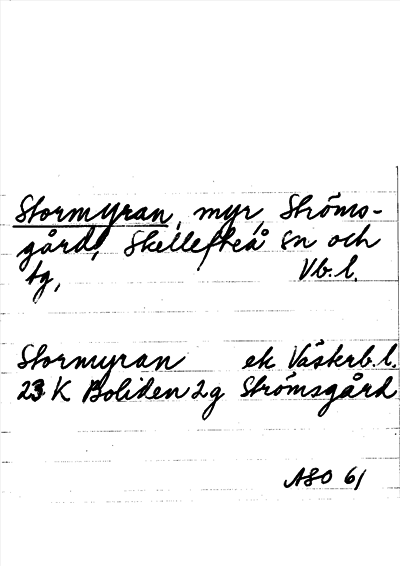 Stormyran, myr, Ströms-
gård, Skellefteå sn och
tg, Vb.l.
Stormyran ek Västerb.l.
23 K Boliden 2g Strömsgård
ASO 61